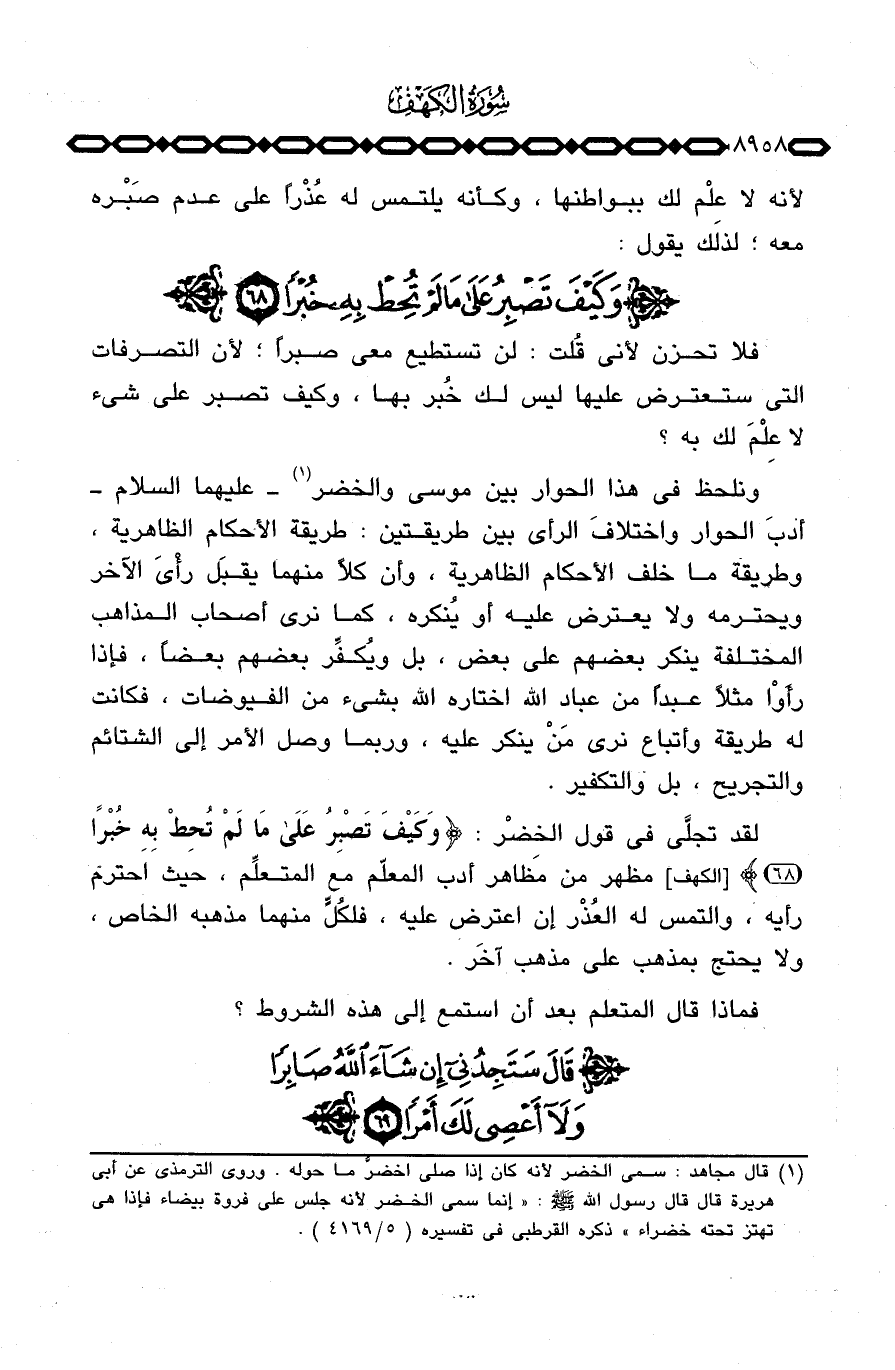 سُورَةُ الكَهْفِ
٨٩٥٨
لأنه لا علْم لك ببواطنها ، وكأنه يلتمس له عُذْراً على عدم صَبْره
معه ؛ لذلك يقول :
وَكَيْفَ تَصْبِرُ عَلَىٰ مَا لَمْ تُحِطْ بِهِ خُبْرًا ٦٨
فلا تحزن لأنى قُلت : لن تستطيع معى صبراً ؛ لأن التصرفات
التى ستعترض عليها ليس لك خُبر بها ، وكيف تصبر على شىء
لا علْمَ لك به ؟
ونلحظ فى هذا الحوار بين موسى والخضر (١) - عليهما السلام -
أدبَ الحوار واختلافَ الرأى بين طريقتين : طريقة الأحكام الظاهرية ،
وطريقة ما خلف الأحكام الظاهرية ، وأن كلاً منهما يقبَل رأْىَ الآخر
ويحترمه ولا يعترض عليه أو يُنكره ، كما نرى أصحاب المذاهب
المختلفة ينكر بعضهم على بعض ، بل ويُكفِّر بعضهم بعضاً ، فإذا
رأوْا مثلاً عبداً من عباد الله اختاره الله بشىء من الفيوضات ، فكانت
له طريقة وأتباع نرى مَنْ ينكر عليه ، وربما وصل الأمر إلى الشتائم
والتجريح ، بل والتكفير .
لقد تجلَّى فى قول الخضر : ﴿ وَكَيْفَ تَصْبِرُ عَلَىٰ مَا لَمْ تُحِطْ بِهِ خُبْرًا
(٦٨) ﴾ [الكهف] مظهر من مظاهر أدب المعلّم مع المتعلِّم ، حيث احترمَ
رأيه ، والتمس له العُذْر إن اعترض عليه ، فلكُلٍّ منهما مذهبه الخاص ،
ولا يحتج بمذهب على مذهب آخَر .
فماذا قال المتعلم بعد أن استمع إلى هذه الشروط ؟
قَالَ سَتَجِدُنِىٓ إِن شَآءَ ٱللَّهُ صَابِرًا
وَلَآ أَعْصِى لَكَ أَمْرًا ٦٩
(١) قال مجاهد : سمى الخضر لأنه كان إذا صلى اخضرَّ ما حوله . وروى الترمذى عن أبى
هريرة قال قال رسول الله ﷺ : « إنما سمى الخضر لأنه جلس على فروة بيضاء فإذا هى
تهتز تحته خضراء » ذكره القرطبى فى تفسيره ( ٤١٦٩/٥ ) .